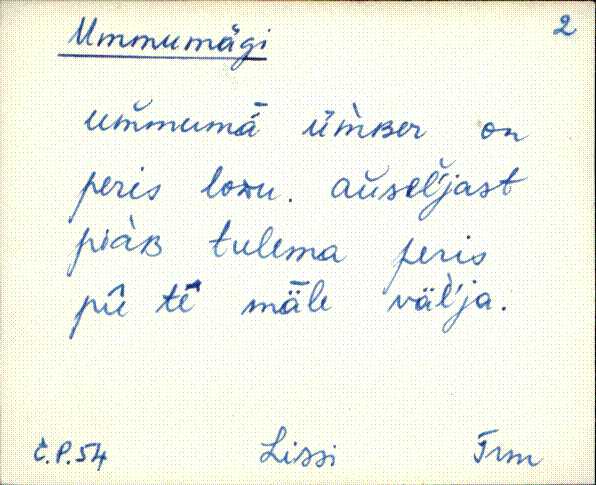 Ummumägi
2
um̆mumā̈ ü̆m̀ʙer on
peris loxu. aŭsel̆'jast
piàʙ tulema peris
pīl tē mā̈le väl̀'ja.
E.P.54 Lissi Trm